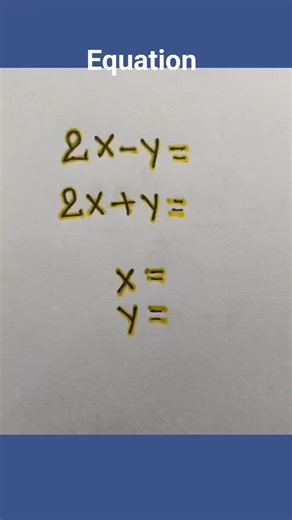 Equation
2x-y=
2x+y=
x=
y=